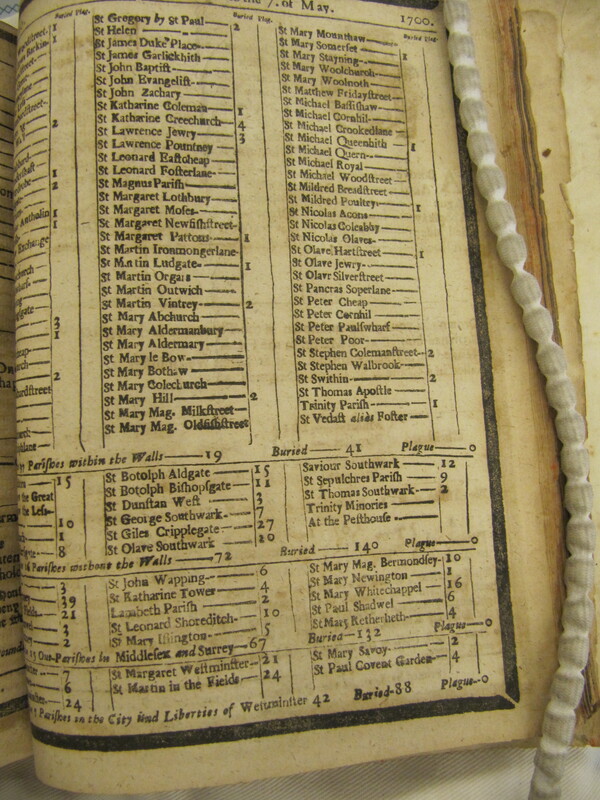 7. of May. 1700.
Buried Plag.
Buried Plag.
Buried Plag.
St Gregory by St Paul 2
St Helen
St James Duke Place
St James Garlickhith
St John Baptiſt
St John Evangeliſt
St John Zachary
St Katharine Coleman 1
St Katharine Creechurch 4
St Lawrence Jewry 3
St Lawrence Pountney
St Leonard Eaſtcheap
St Leonard Foſterlane
St Magnus Pariſh
St Margaret Lothbury
St Margaret Moſes
St Margaret Newfiſhſtreet
St Margaret Pattons 1
St Martin Ironmongerlane
St Martin Ludgate 1
St Martin Orgars
St Martin Outwich
St Martin Vintrey 2
St Mary Abchurch
St Mary Aldermanbury
St Mary Aldermary
St Mary le Bow
St Mary Bothaw
St Mary Colechurch
St Mary Hill 2
St Mary Mag. Milkſtreet
St Mary Mag. Oldfiſhſtreet
St Mary Mounthaw
St Mary Somerſet 1
St Mary Stayning
St Mary Woolchurch
St Mary Woolnoth
St Matthew Fridayſtreet
St Michael Baſſiſhaw
St Michael Cornhil
St Michael Crookedlane
St Michael Queenhith 1
St Michael Quern
St Michael Royal
St Michael Woodſtreet
St Mildred Breadſtreet
St Mildred Poultry 1
St Nicolas Acons
St Nicolas Coleabby
St Nicolas Olaves
St Olave Hartſtreet 1
St Olave Jewry
St Olave Silverſtreet
St Pancras Soperlane
St Peter Cheap
St Peter Cornhil
St Peter Paulſwharf
St Peter Poor
St Stephen Colemanſtreet 2
St Stephen Walbrook
St Swithin 2
St Thomas Apoſtle
Trinity Pariſh 1
St Vedaſt aliàs Foſter
Pariſhes within the Walls 19 Buried 41 Plague 0
15
the Great
the Leſs
10
1
8
St Botolph Aldgate 15
St Botolph Biſhopſgate 11
St Dunſtan Weſt 3
St George Southwark 7
St Giles Cripplegate 27
St Olave Southwark 20
Saviour Southwark 12
St Sepulchres Pariſh 9
St Thomas Southwark 2
Trinity Minories
At the Peſthouſe
Pariſhes without the Walls 72 Buried 140 Plague 0
3
39
21
3
2
St John Wapping 6
St Katharine Tower 4
Lambeth Pariſh 2
St Leonard Shoreditch 10
St Mary Iſlington 5
St Mary Mag. Bermondſey 10
St Mary Newington 1
St Mary Whitechappel 16
St Paul Shadwel 6
St Mary Retherheth 4
Out-Pariſhes in Middleſex and Surrey 67 Buried 132 Plague 0
7
6
24
St Margaret Weſtminſter 21
St Martin in the Fields 24
St Mary Savoy 2
St Paul Covent Garden 4
Pariſhes in the City and Liberties of Weſtminſter 42 Buried 88 Plague 0